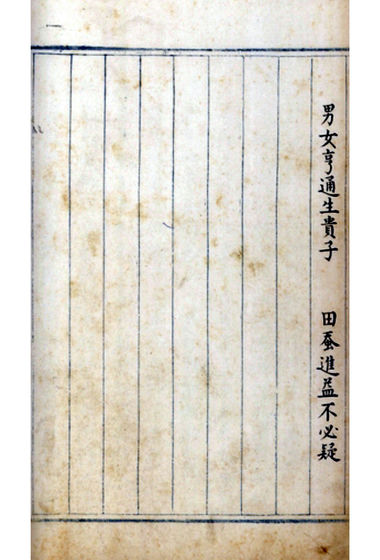 男女亨通生貴子　田蚕進益不必疑